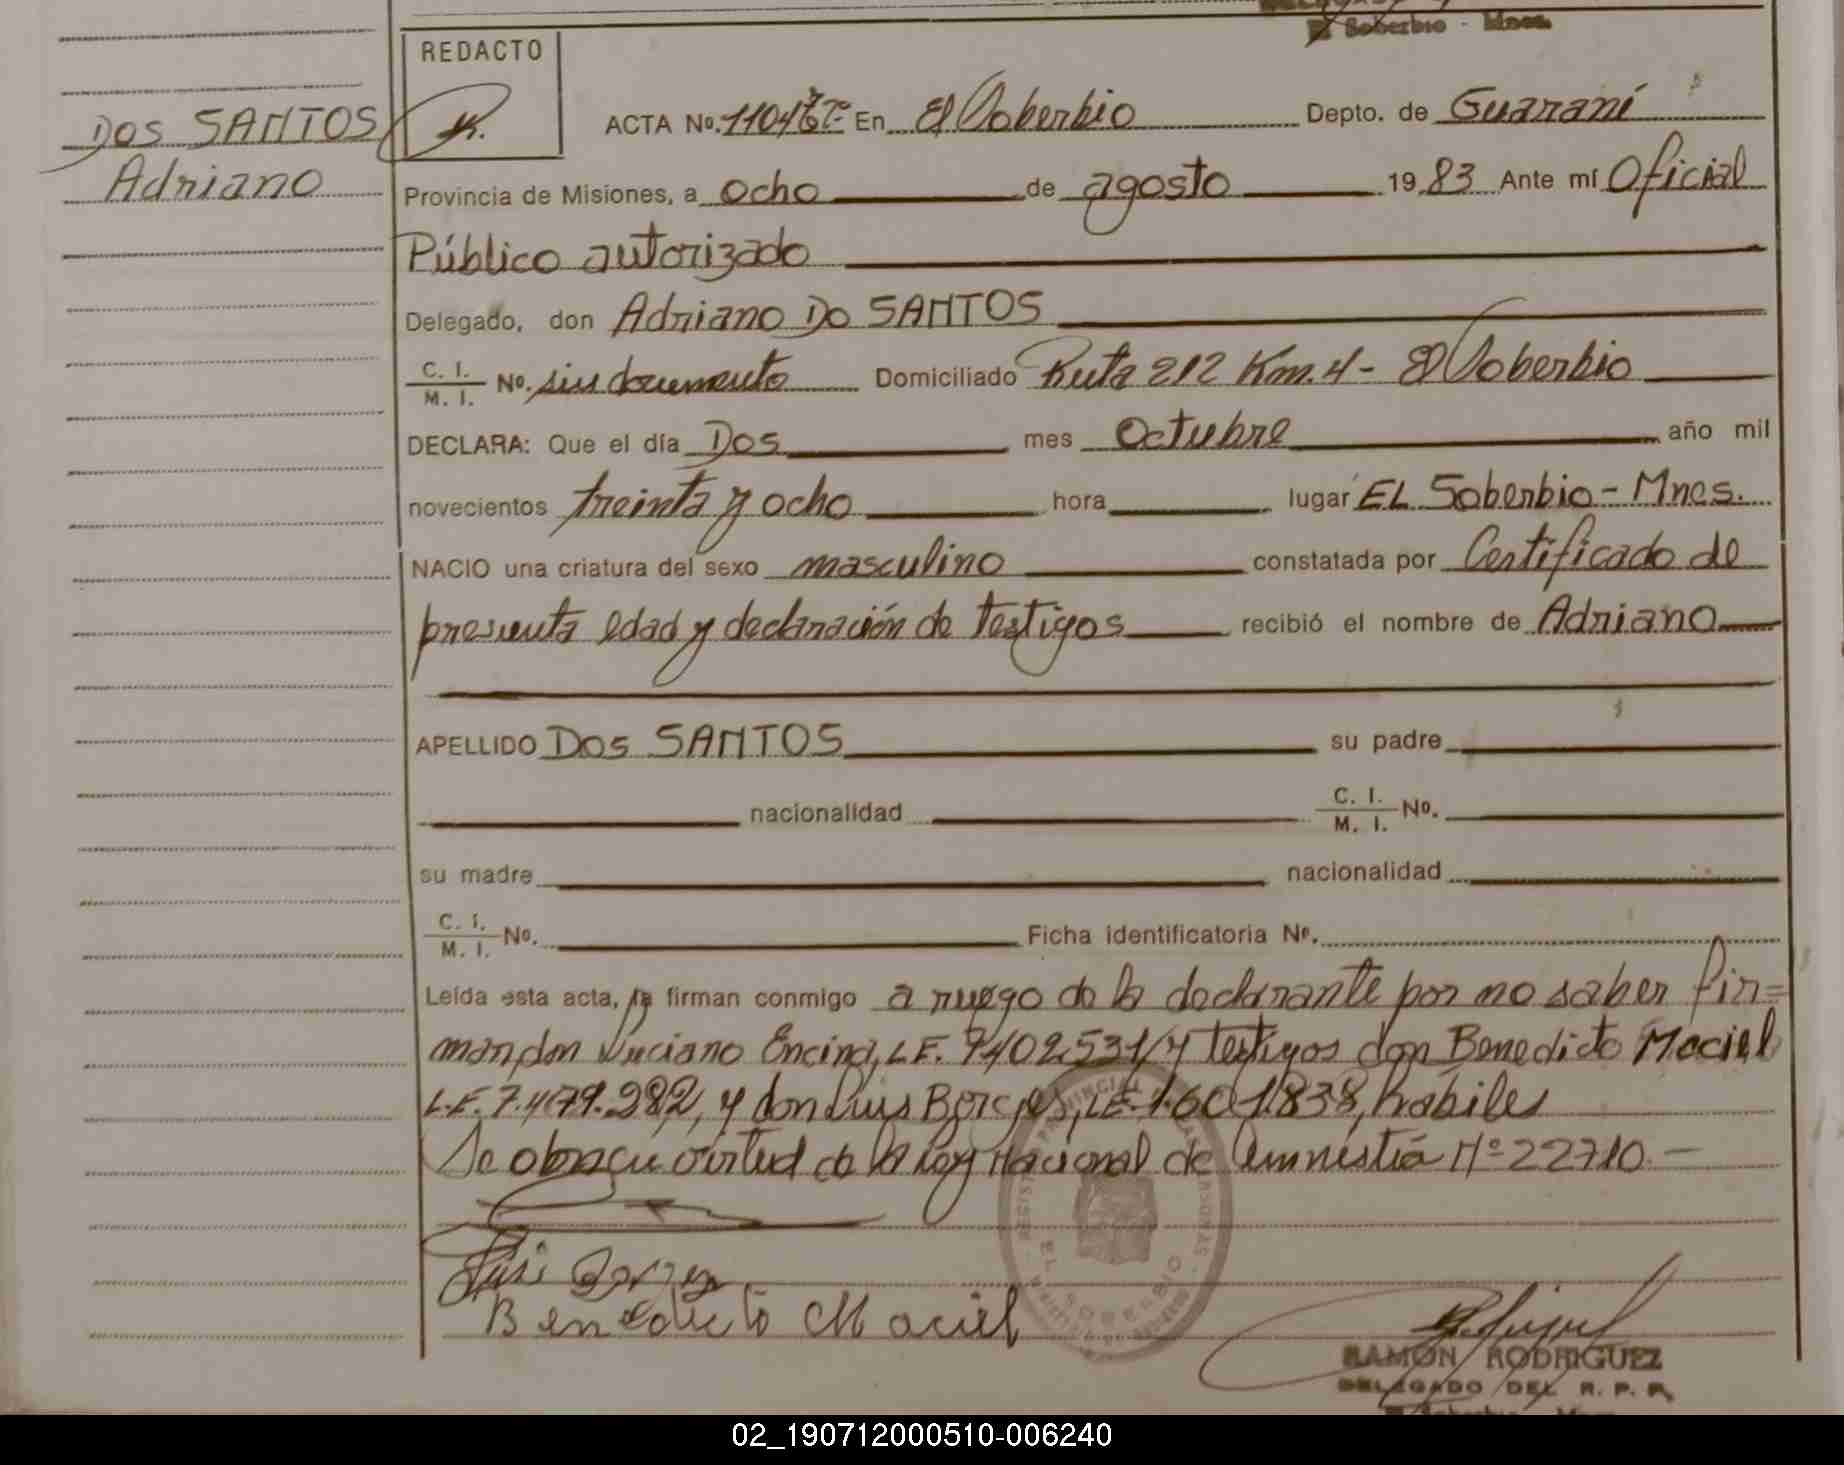 El Soberbio - Mnes.
REDACTO
DOS SANTOS
Adriano
ACTA No. En El Soberbio Depto. de Guaraní
Provincia de Misiones, a ocho de agosto 19 83 Ante mí Oficial
Público autorizado
Delegado, don Adriano Do SANTOS
C. I. M. I. No. sin documento Domiciliado Ruta 212 Km. 4 - El Soberbio
DECLARA: Que el día Dos mes Octubre año mil
novecientos treinta y ocho hora lugar EL Soberbio - Mnes.
NACIO una criatura del sexo masculino constatada por Certificado de
presunta edad y declaración de Testigos recibió el nombre de Adriano
APELLIDO Dos SANTOS su padre
nacionalidad C. I. M. I. No.
su madre nacionalidad
C. I. M. I. No. Ficha identificatoria No.
Leída esta acta, la firman conmigo a ruego de la declarante por no saber fir=
mar, don Luciano Encina, L.E. 7402531, y Testigos don Benedicto Maciel
L.E. 7.479.282, y don Luis Borges, L.E. 1.601.838, habiles
Se obra en virtud de la Ley Nacional de Amnistia Nº 22710.—
Luis Borges
Benedicto Maciel
EL SOBERBIO
RAMON RODRIGUEZ
DELEGADO DEL R. P. P.
02_190712000510-006240